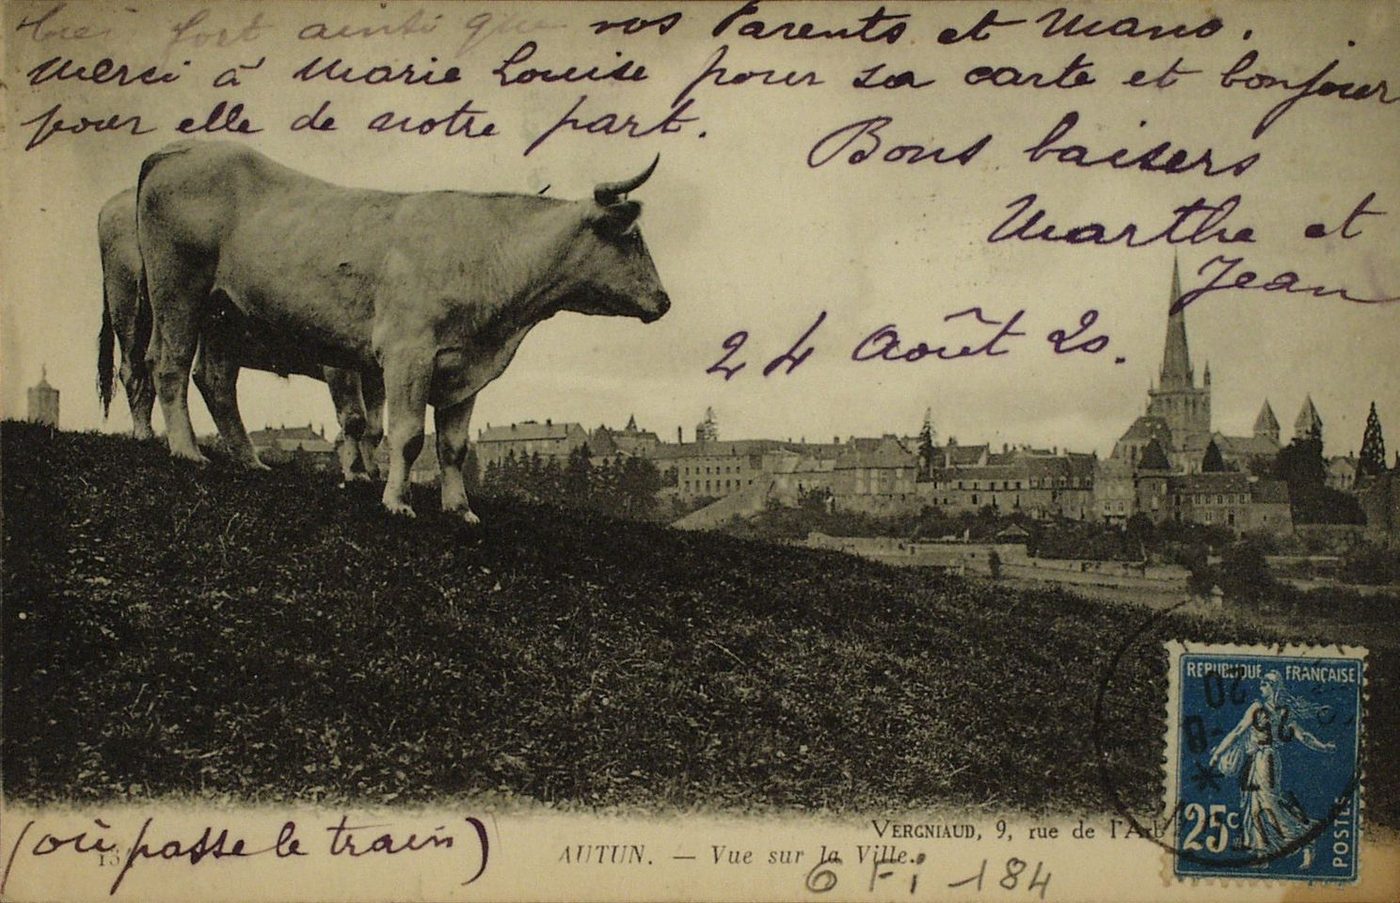 bien fort ainsi que vos Parents et Mano.
Merci à Marie Louise pour sa carte et bonjour
pour elle de notre part.
Bons baisers
Marthe et
Jean
24 Août 20.
REPUBLIQUE FRANÇAISE
20
25 -8
25c
POSTES
VERGNIAUD, 9, rue de l'A
(où passe le train)
AUTUN. — Vue sur la Ville.
6 Fi - 184